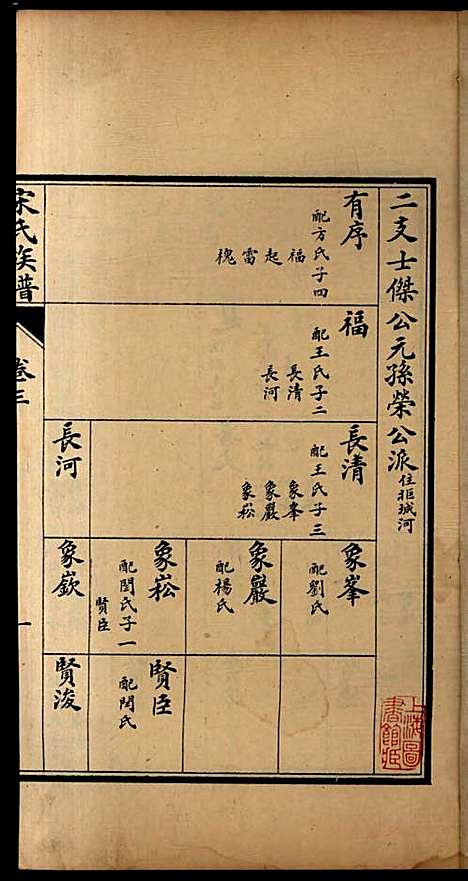 二支士傑公元孫榮公派住拒城河
有序
配方氏子四
福
起
雷
槐
福
配王氏子二
長清
長河
長清
配王氏子三
象峯
象巖
象崧
長河
象峯
配劉氏
象巖
配楊氏
象崧
配閏氏子一
賢臣
象嶔
賢臣
配閃氏
賢浚
宋氏族譜
卷三
一
上海圖書館藏